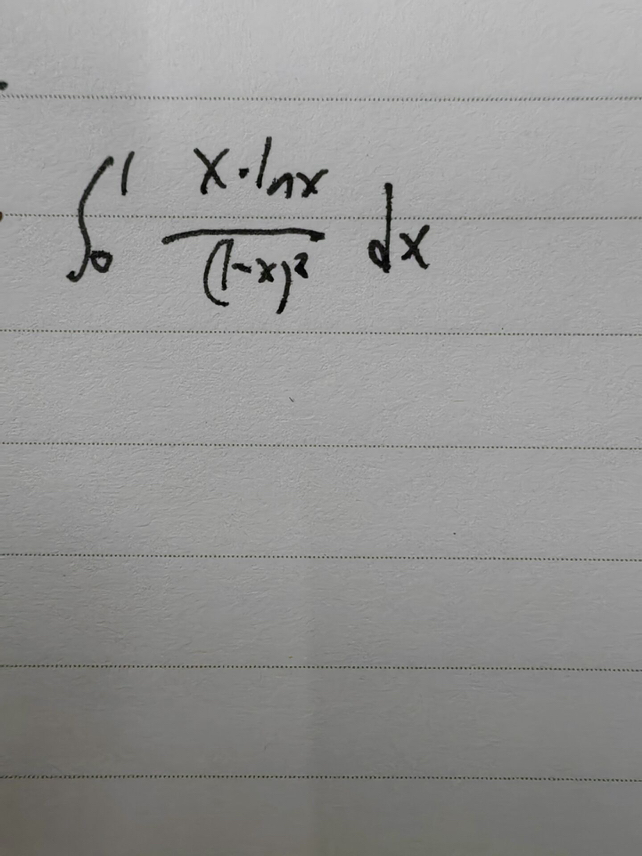 ∫₀¹ x·lnx/(1-x)² dx